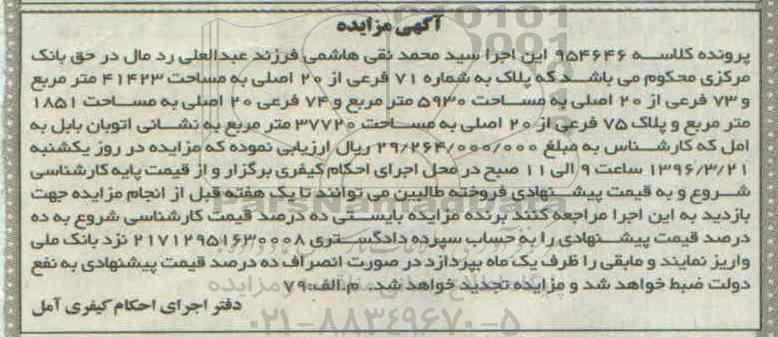 آگهی مزایده
پرونده کلاسه ۹۵۴۶۴۶ این اجرا سید محمد نقی هاشمی فرزند عبدالعلی رد مال در حق بانک
مرکزی محکوم می باشد که پلاک به شماره ۷۱ فرعی از ۲۰ اصلی به مساحت ۴۱۴۲۳ متر مربع
و ۷۳ فرعی از ۲۰ اصلی به مساحت ۵۹۳۰ متر مربع و ۷۴ فرعی ۲۰ اصلی به مساحت ۱۸۵۱
متر مربع و پلاک ۷۵ فرعی از ۲۰ اصلی به مساحت ۳۷۷۲۰ متر مربع به نشانی اتوبان بابل به
امل که کارشناس به مبلغ ۲۹/۲۶۴/۰۰۰/۰۰۰ ریال ارزیابی نموده که مزایده در روز یکشنبه
۱۳۹۶/۳/۲۱ ساعت ۹ الی ۱۱ صبح در محل اجرای احکام کیفری برگزار و از قیمت پایه کارشناسی
شروع و به قیمت پیشنهادی فروخته طالبین می توانند تا یک هفته قبل از انجام مزایده جهت
بازدید به این اجرا مراجعه کنند برنده مزایده بایستی ده درصد قیمت کارشناسی شروع به ده
درصد قیمت پیشنهادی را به حساب سپرده دادگستری ۲۱۷۱۲۹۵۱۶۳۰۰۰۸ نزد بانک ملی
واریز نمایند و مابقی را ظرف یک ماه بپردازد در صورت انصراف ده درصد قیمت پیشنهادی به نفع
دولت ضبط خواهد شد و مزایده تجدید خواهد شد. م.الف:۷۹
دفتر اجرای احکام کیفری آمل
ParsNamadData
۰۲۱-۸۸۳۴۹۶۷۰-۵